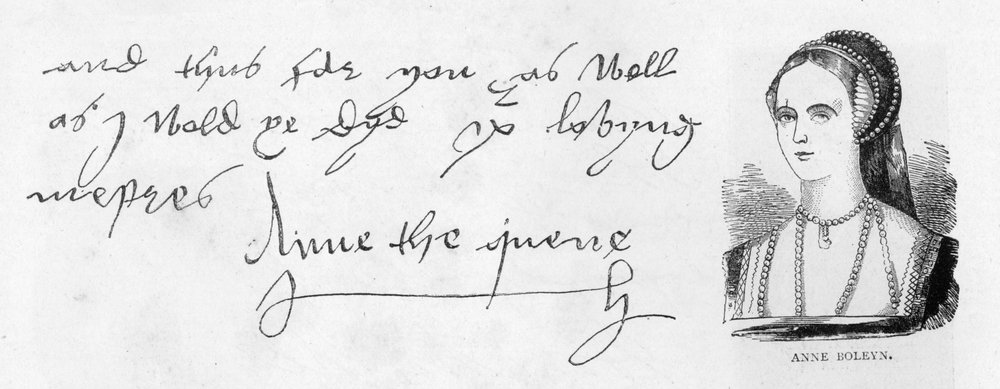 and thus far you as Well
as I Wold ye dyd yo lovyng
mestres
Anne the quene
ANNE BOLEYN.